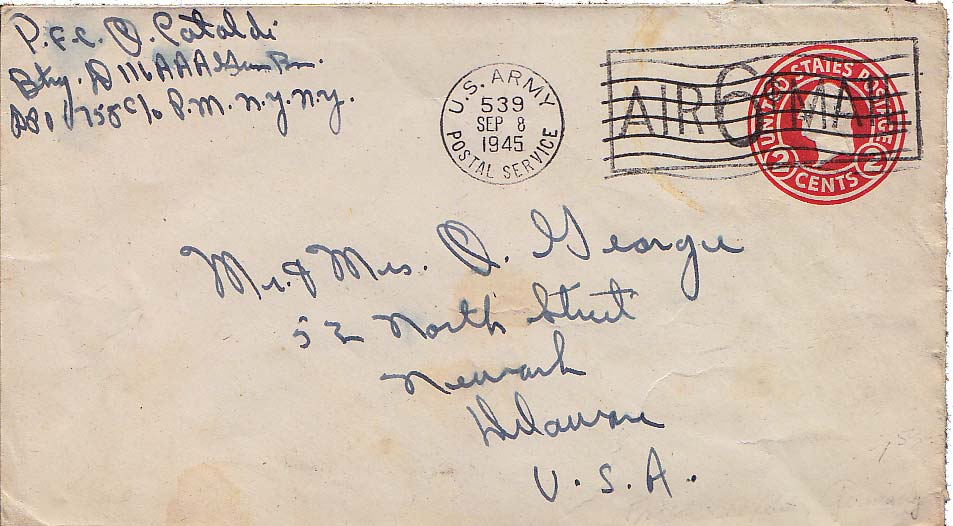 P.F.C. O. Cataldi
Btry. D 116 AAA Gun Bn.
APO 758 c/o P.M. N.Y. N.Y.
U.S. ARMY
539
SEP 8
1945
POSTAL SERVICE
AIR 6¢ MAIL
UNITED STATES POSTAGE
2 CENTS 2
Mr. & Mrs. O. George
52 North Street
Newark
Delaware
U.S.A.